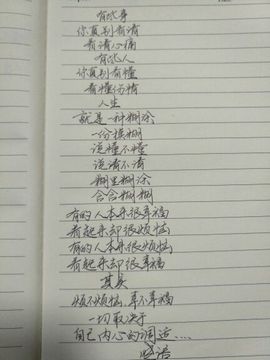 有些事
你真别看清
看清心痛
有些人
你真别看懂
看懂伤情
人生
就是一种糊涂
一份模糊
说懂不懂
说清不清
糊里糊涂
含含糊糊
有的人本来很幸福
看起来却很烦恼
有的人本来很烦恼
看起来却很幸福
其实
烦不烦恼，幸不幸福
一切取决于
自己内心的调适....